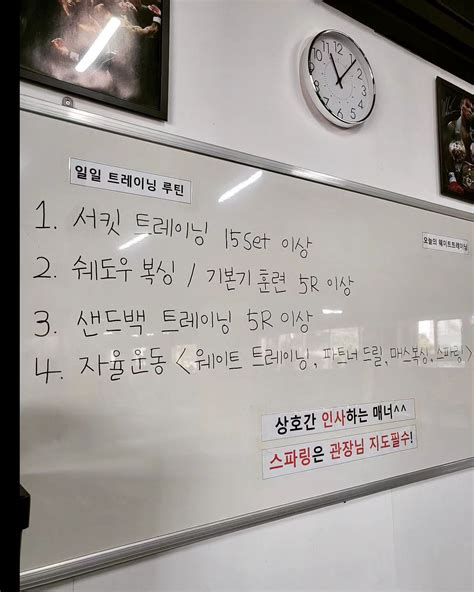 일일 트레이닝 루틴
오늘의 웨이트트레이닝
1. 서킷 트레이닝 15set 이상
2. 쉐도우 복싱 / 기본기 훈련 5R 이상
3. 샌드백 트레이닝 5R 이상
4. 자율운동 < 웨이트 트레이닝, 파트너 드릴, 매스복싱, 스파링 >
상호간 인사하는 매너^^
스파링은 관장님 지도필수!